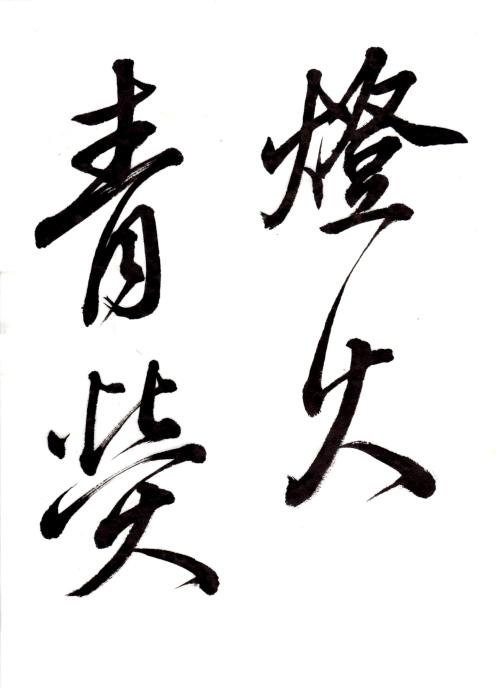 燈火
青熒